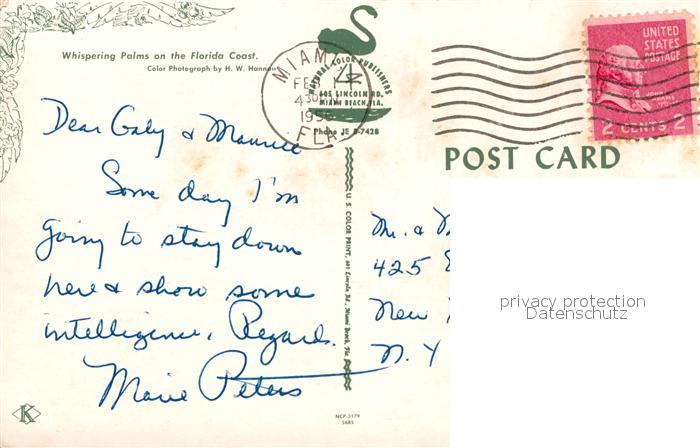 Whispering Palms on the Florida Coast.
Color Photograph by H. W. Hannau
MIAMI
FEB
430
1956
FLA.
NATURAL COLOR PUBLISHERS
605 LINCOLN RD.
MIAMI BEACH, FLA.
Phone JE 8-7428
UNITED
STATES
POSTAGE
JOHN ADAMS
2 CENTS 2
POST CARD
Dear Gaby & Maurice
Some day I'm
going to stay down
here & show some
intelligence. Regards.
Marie Peters
U. S. COLOR PRINT, 605 Lincoln Rd., Miami Beach, Fla.
Mr. & M
425 E
New
N. Y
privacy protection
Datenschutz
K
NCP-3179
5685